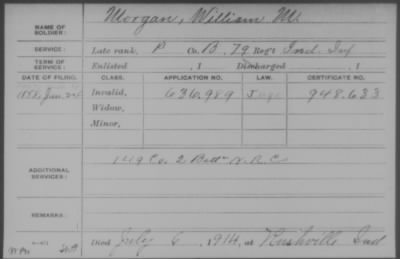 NAME OF SOLDIER: Morgan, William M.
SERVICE: Late rank, P Co. B, 79 Reg't Ind. Inf
TERM OF SERVICE: Enlisted , 1 Discharged , 1
DATE OF FILING. CLASS. APPLICATION NO. LAW. CERTIFICATE NO.
1888, Jan. Invalid, 636.989 948.633
Widow,
Minor,
ADDITIONAL SERVICES: 149 Co. 2 Batt V.R.C.
REMARKS:
Died July 6, 1914, at Rushville Ind